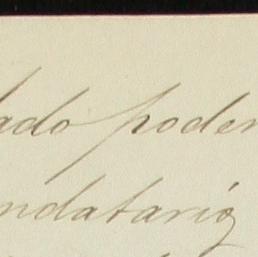 ado poder
ndatario